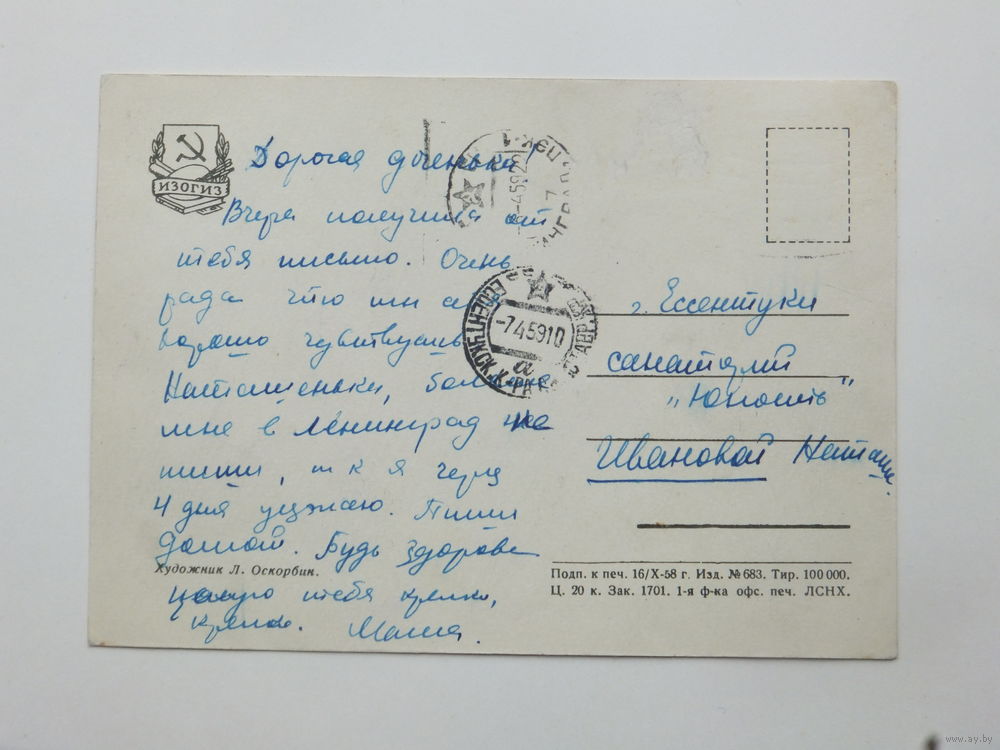 ИЗОГИЗ
Дорогая доченька!
Вчера получила от
тебя письмо. Очень
рада что ты
хорошо чувствуешь
Наташенька, больше
мне в Ленинград не
пиши, т к я через
4 дня уезжаю. Пиши
домой. Будь здорова
Художник Л. Оскорбин.
целую тебя крепко,
крепко. Мама.
ЕССЕНТУКИ
-7.4.59 10
а
г. Ессентуки
санаторий
„Юность"
Ивановой Наташе.
Подп. к печ. 16/X-58 г. Изд. № 683. Тир. 100 000.
Ц. 20 к. Зак. 1701. 1-я ф-ка офс. печ. ЛСНХ.
www.ay.by